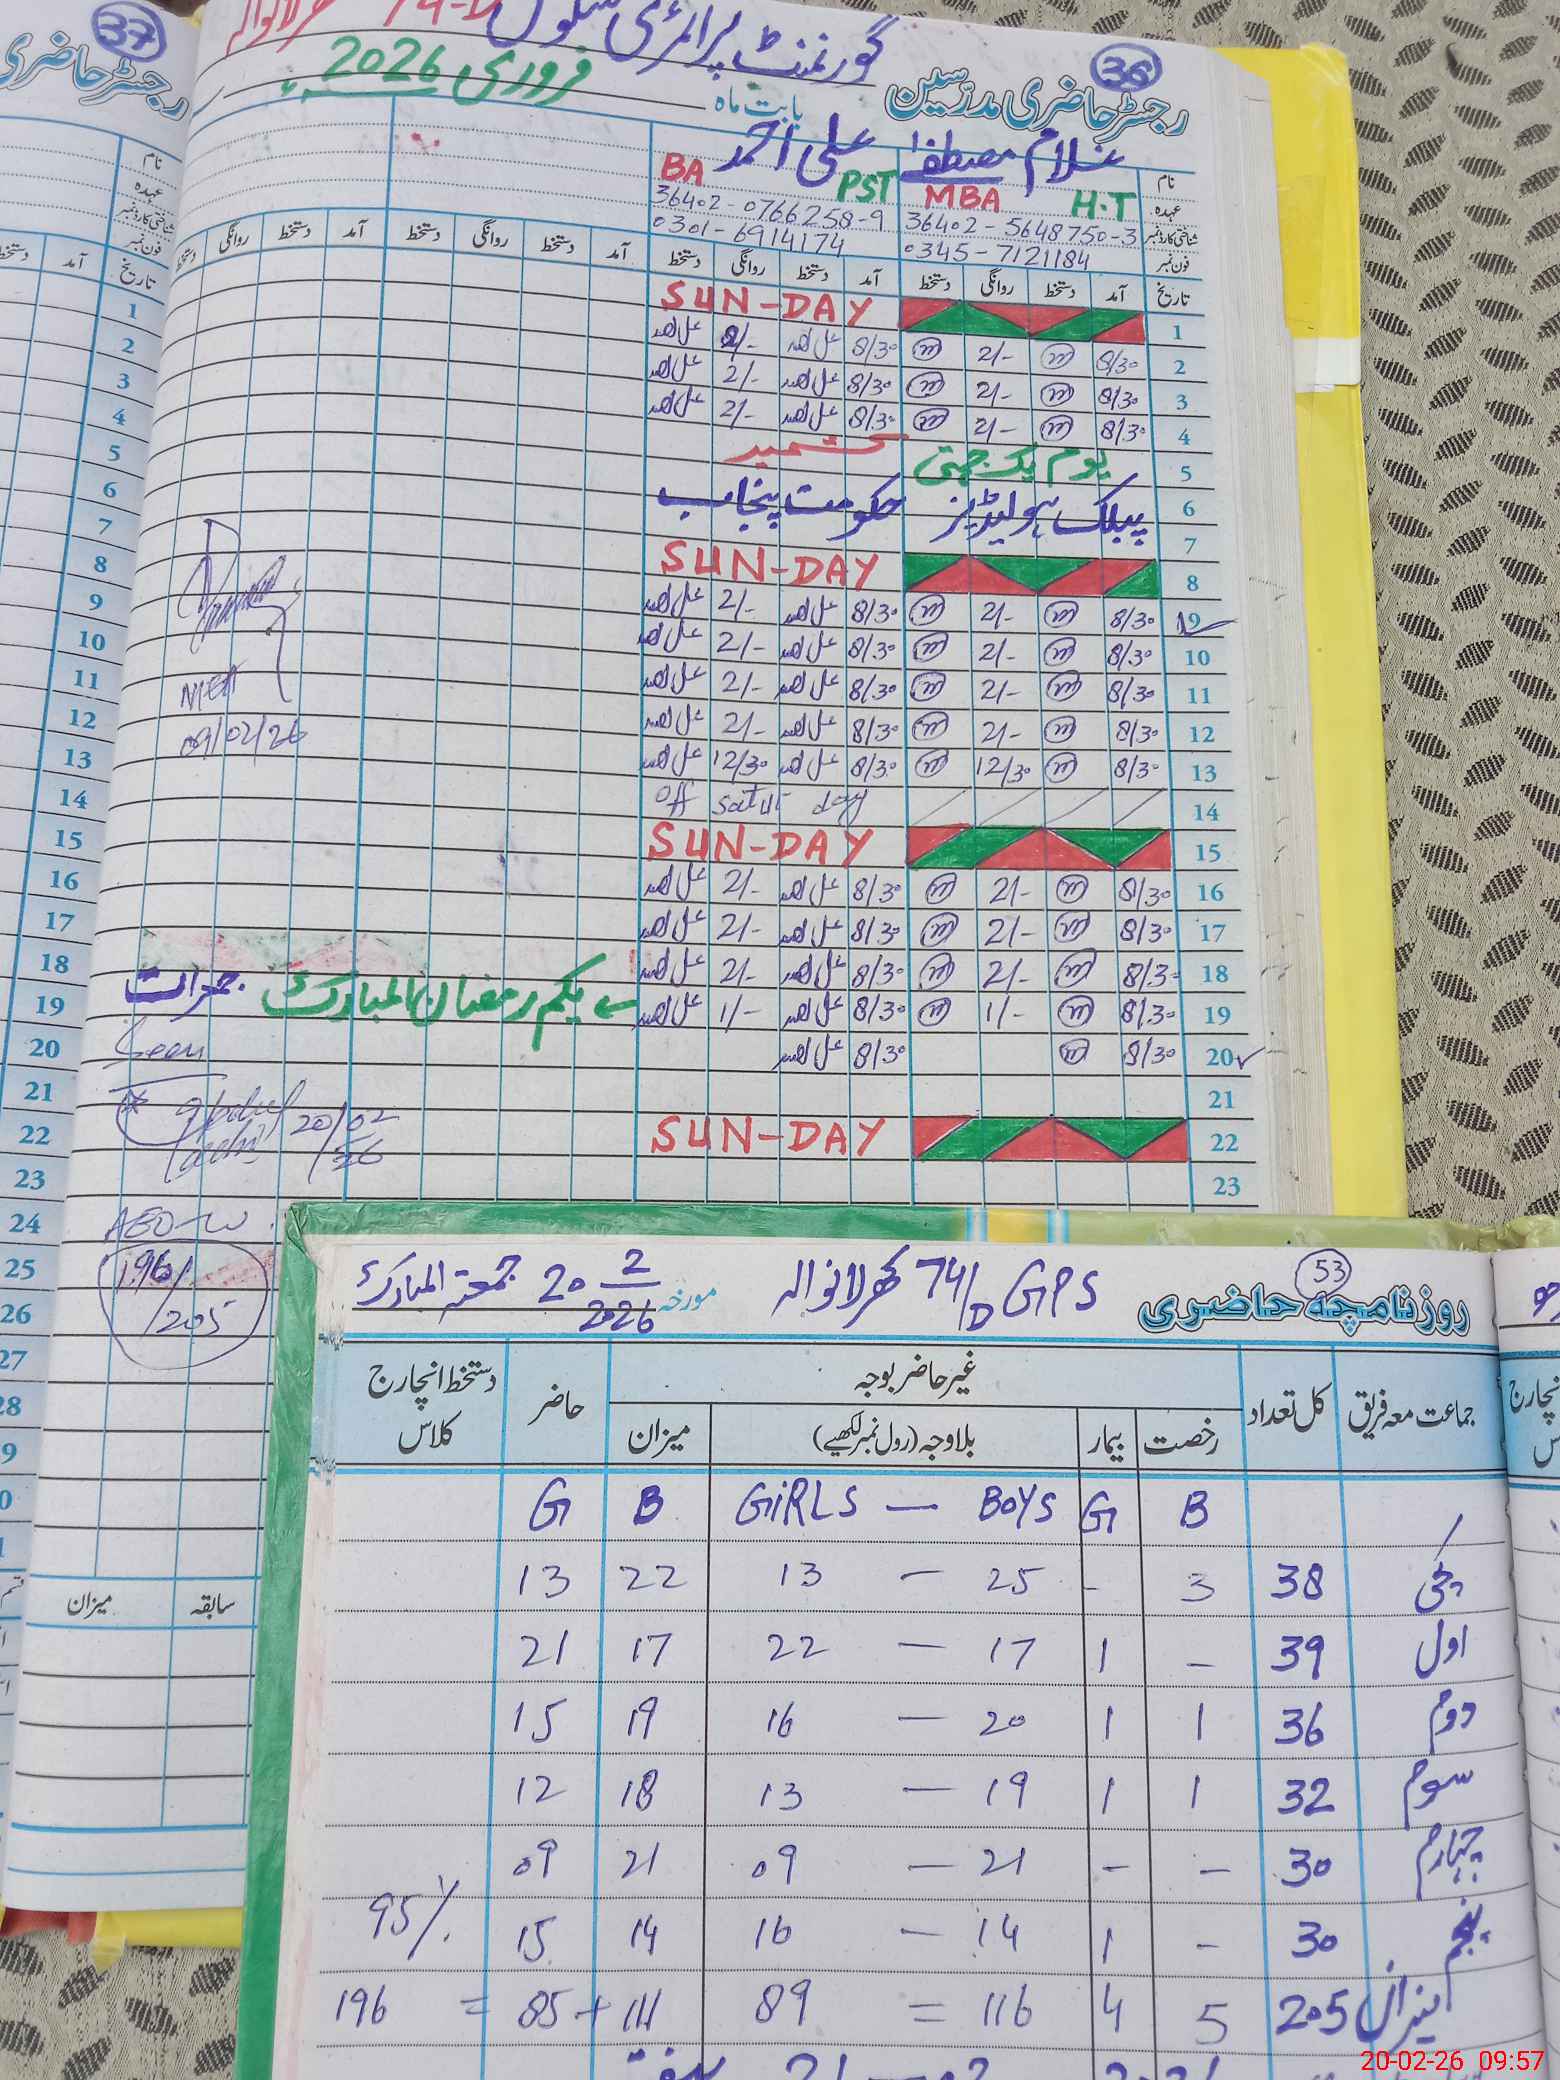 36
37
گورنمنٹ پرائمری سکول 74-D
رجسٹر حاضری مدرسین بابت ماہ فروری 2026
رجسٹر حاضری
نام غلام مصطفیٰ علی احمد
عہدہ H.T MBA PST BA
شناختی کارڈ نمبر 36402-5648750-3 36402-0766258-9
فون نمبر 0345-7121184 0301-6914174
تاریخ آمد دستخط روانگی دستخط آمد دستخط روانگی دستخط آمد دستخط روانگی دستخط آمد دستخط روانگی دستخط
1 SUN-DAY
2 8/30 m 2/- m 8/30 علی احمد 2/- علی احمد
3 8/30 m 2/- m 8/30 علی احمد 2/- علی احمد
4 8/30 m 2/- m 8/30 علی احمد 2/- علی احمد
5 یوم یک جہتی کشمیر
6 پبلک ہولیڈیز حکومت پنجاب
7
8 SUN-DAY
9 8/30 m 2/- m 8/30 علی احمد 2/- علی احمد
10 8/30 m 2/- m 8/30 علی احمد 2/- علی احمد
11 8/30 m 2/- m 8/30 علی احمد 2/- علی احمد
12 8/30 m 2/- m 8/30 علی احمد 2/- علی احمد
13 8/30 m 12/30 m 8/30 علی احمد 12/30 علی احمد
14 off satur day
15 SUN-DAY
16 8/30 m 2/- m 8/30 علی احمد 2/- علی احمد
17 8/30 m 2/- m 8/30 علی احمد 2/- علی احمد
18 8/30 m 2/- m 8/30 علی احمد 2/- علی احمد
19 8/30 m 1/- m 8/30 علی احمد 1/- علی احمد ← یکم رمضان المبارک جمعرات
20 8/30 m 8/30 علی احمد
21
22 SUN-DAY
23
09/02/26
Seen
20/02/26
AEO-W
196/205
نام
عہدہ
شناختی کارڈ نمبر
فون نمبر
تاریخ
آمد
دستخط
1
2
3
4
5
6
7
8
9
10
11
12
13
14
15
16
17
18
19
20
21
22
23
24
25
26
27
سابقہ میزان
53
روزنامچہ حاضری GPS 74/D کھرلانوالہ مورخہ 20 2/2026 جمعتہ المبارک
جماعت معہ فریق کل تعداد غیر حاضر بوجہ حاضر دستخط انچارج کلاس
رخصت بیمار بلاوجہ (رول نمبر لکھیے) میزان
B G BOYS — GIRLS B G
کچی 38 3 - 25 — 13 22 13
اول 39 - 1 17 — 22 17 21
دوم 36 1 1 20 — 16 19 15
سوم 32 1 1 19 — 13 18 12
چہارم 30 - - 21 — 09 21 09
پنجم 30 - 1 14 — 16 14 15 95%
میزان 205 5 4 116 = 89 111 + 85 = 196
20-02-26 09:57